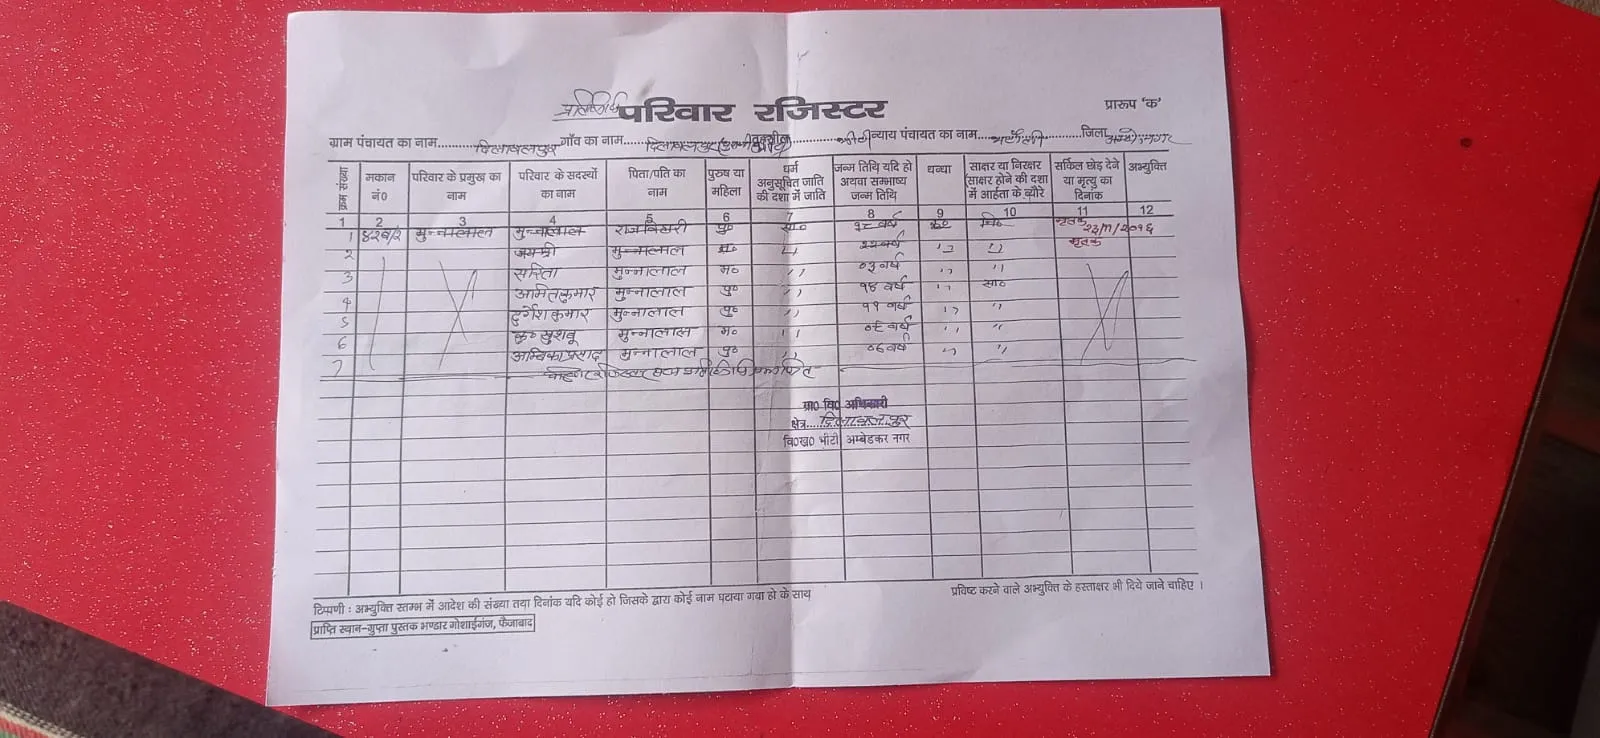 प्रतिलिपि परिवार रजिस्टर प्रारूप 'क'
ग्राम पंचायत का नाम दिलावलपुर गाँव का नाम दिलावलपुर तहसील भीटी न्याय पंचायत का नाम जिला
क्रम संख्या मकान नं0 परिवार के प्रमुख का नाम परिवार के सदस्यों का नाम पिता/पति का नाम पुरुष या महिला धर्म अनुसूचित जाति की दशा में जाति जन्म तिथि यदि हो अथवा सम्भाष्य जन्म तिथि धन्धा साक्षर या निरक्षर साक्षर होने की दशा में आर्हता के ब्यौरे सर्किल छोड़ देने या मृत्यु का दिनांक अभ्युक्ति
1 2 3 4 5 6 7 8 9 10 11 12
1 मुन्नालाल मुन्नालाल राजबिहारी पु० सा० वर्ष नि० मृतक 23/11/२०१६
2 जयश्री मुन्नालाल वर्ष ,, ,, मृतक
3 सरिता मुन्नालाल म० ,, ०३ वर्ष ,, ,,
4 अमित कुमार मुन्नालाल पु० ,, १४ वर्ष ,, सा०
5 दुर्गेश कुमार मुन्नालाल पु० ,, ११ वर्ष ,, ,,
6 कु० खुशबू मुन्नालाल म० ,, वर्ष ,, ,,
7 अम्बिका प्रसाद मुन्नालाल पु० ,, ०६ वर्ष ,, ,,
ग्रा0 वि0 अधिकारी
क्षेत्र....दिलावलपुर
वि०ख० भीटी अम्बेडकर नगर
टिप्पणी : अभ्युक्ति स्तम्भ में आदेश की संख्या तया दिनांक यदि कोई हो जिसके द्वारा कोई नाम घटाया गया हो के साथ प्रविष्ट करने वाले अभ्युक्ति के हस्ताक्षर भी दिये जाने चाहिए ।
प्राप्ति स्थान-गुप्ता पुस्तक भण्डार गोशाईगंज, फैजाबाद